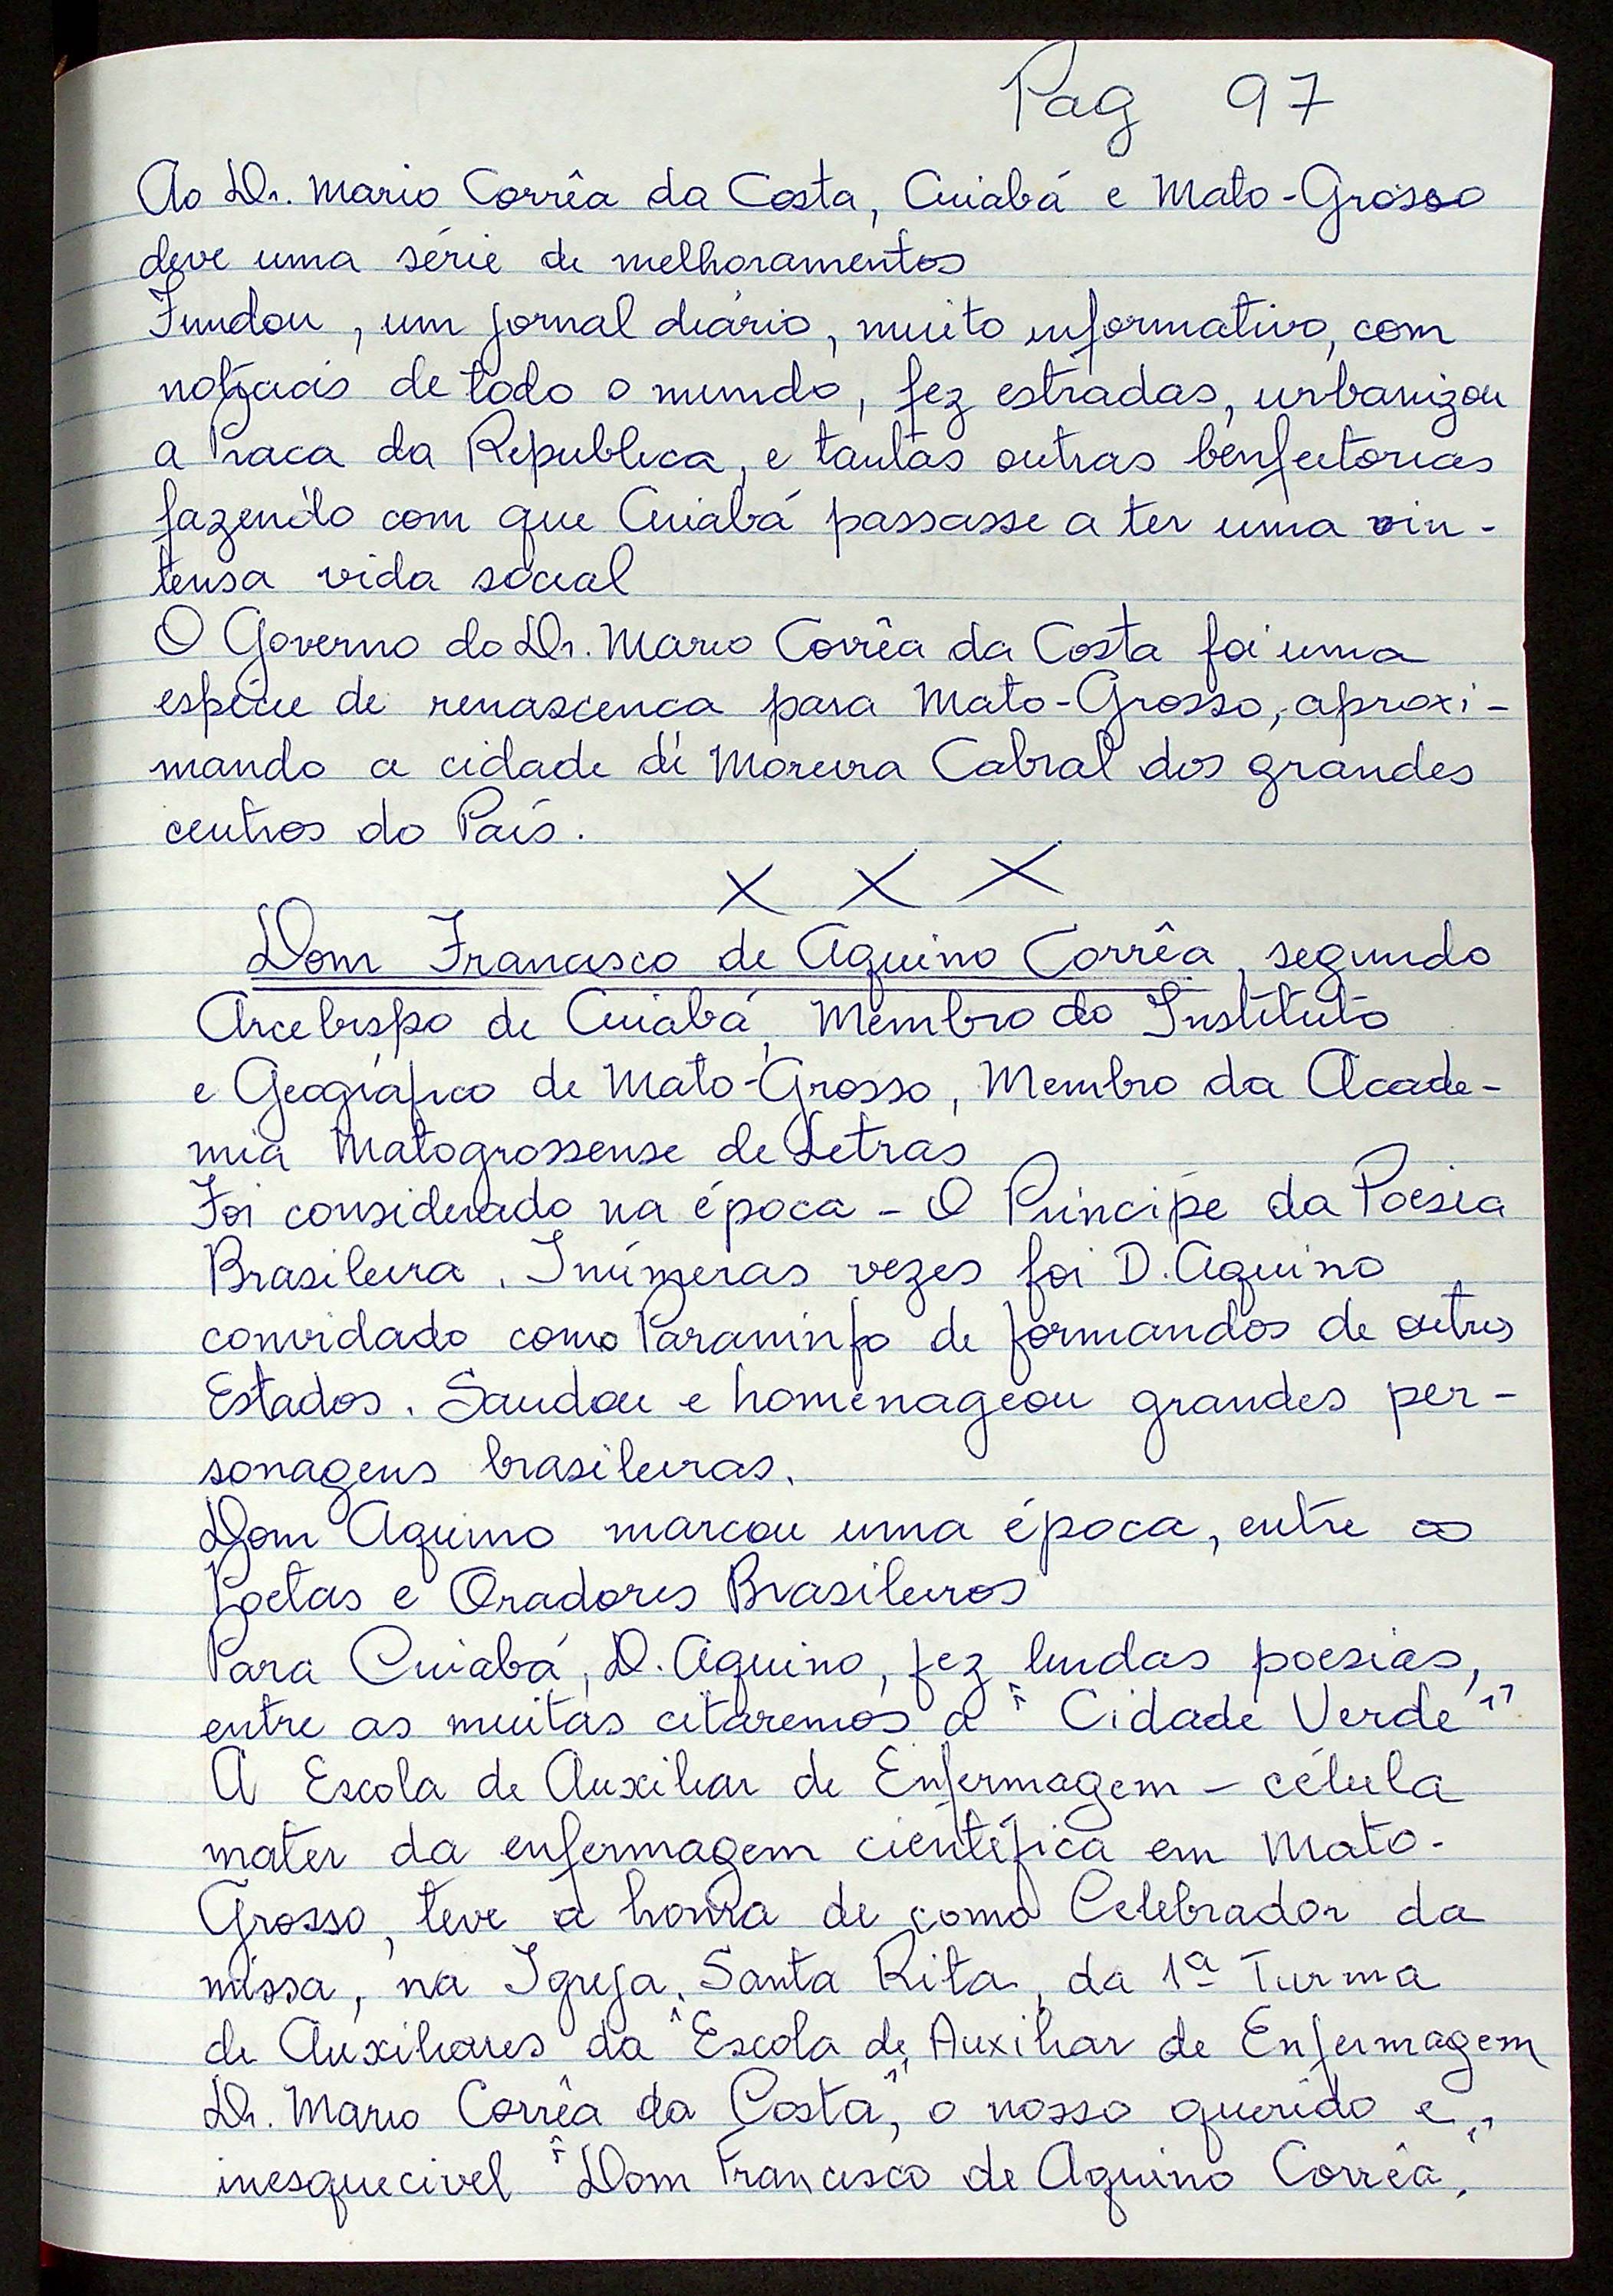 Pag 97
Ao Dr. Mario Corrêa da Costa, Cuiabá e Mato-Grosso
deve uma série de melhoramentos
Fundou, um jornal diário, muito informativo, com
notíciais de todo o mundo, fez estradas, urbanizou
a Praca da Republica, e tantas outras benfeitorias
fazendo com que Cuiabá passasse a ter uma vin-
tensa vida social
O Governo do Dr. Mario Corrêa da Costa foi uma
espécie de renascenca para Mato-Grosso, aproxi-
mando a cidade de Moreira Cabral dos grandes
centros do País.
X X X
Dom Francisco de Aquino Corrêa, segundo
Arcebispo de Cuiabá, Membro do Instituto
e Geográfico de Mato-Grosso, Membro da Acade-
mia Matogrossense de Letras
Foi considerado na época - O Príncipe da Poesia
Brasileira. Inúmeras vezes foi D. Aquino
convidado como Paraninfo de formandos de outros
Estados. Saudou e homenageou grandes per-
sonagens brasileiras.
Dom Aquino marcou uma época, entre os
Poetas e Oradores Brasileiros
Para Cuiabá, D. Aquino, fez lindas poesias,
entre as muitas citaremos a "Cidade Verde"
A Escola de Auxiliar de Enfermagem - célula
mater da enfermagem científica em Mato-
Grosso, teve a honra de como Celebrador da
missa, na Igreja, Santa Rita, da 1ª Turma
de Auxiliares da "Escola de Auxiliar de Enfermagem
Dr. Mario Corrêa da Costa", o nosso querido e
inesquecivel "Dom Francisco de Aquino Corrêa,"